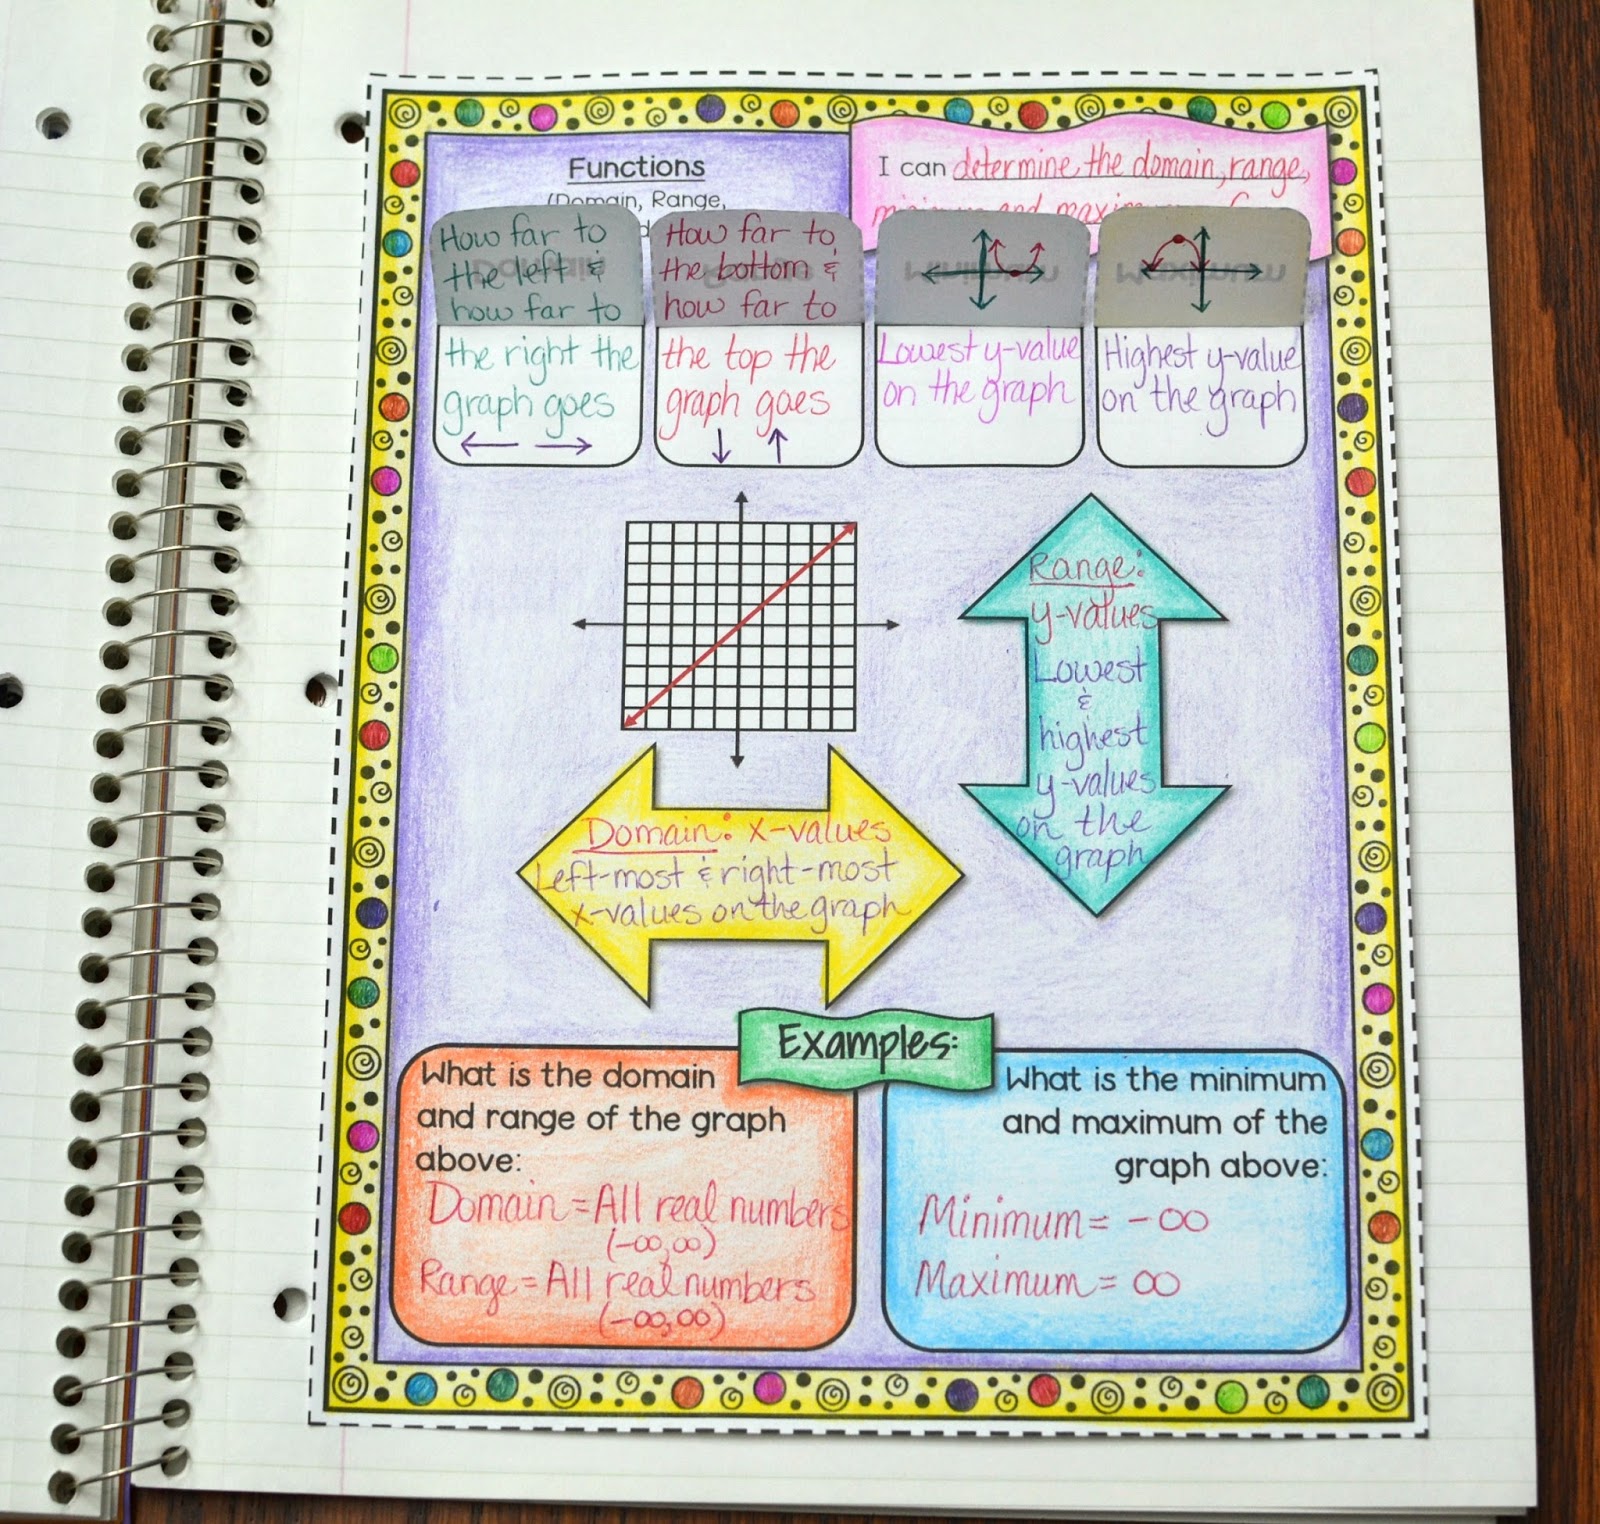 Functions
(Domain, Range,
I can determine the domain, range,
and
How far to
the left &
how far to
the right the
graph goes
How far to
the bottom &
how far to
the top the
graph goes
Lowest y-value
on the graph
Highest y-value
on the graph
Range:
y-values
Lowest
&
highest
y-values
on the
graph
Domain: x-values
Left-most & right-most
x-values on the graph
Examples:
What is the domain
and range of the graph
above:
Domain = All real numbers
(-∞,∞)
Range = All real numbers
(-∞,∞)
What is the minimum
and maximum of the
graph above:
Minimum = -∞
Maximum = ∞